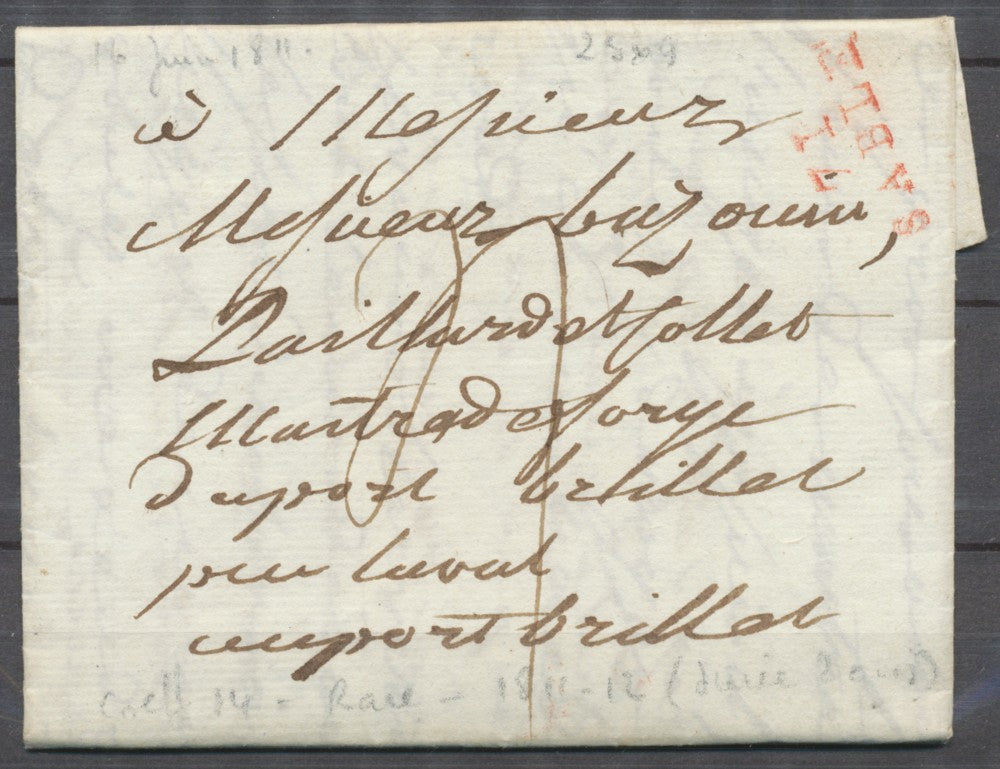 16 Juin 1811.
25x9
71
SABLE
à Messieurs
Messieurs
Paillard et Jollet
Maitre de forge
Duport brillet
par laval
au port brillet
14 - Rare - 1811-12